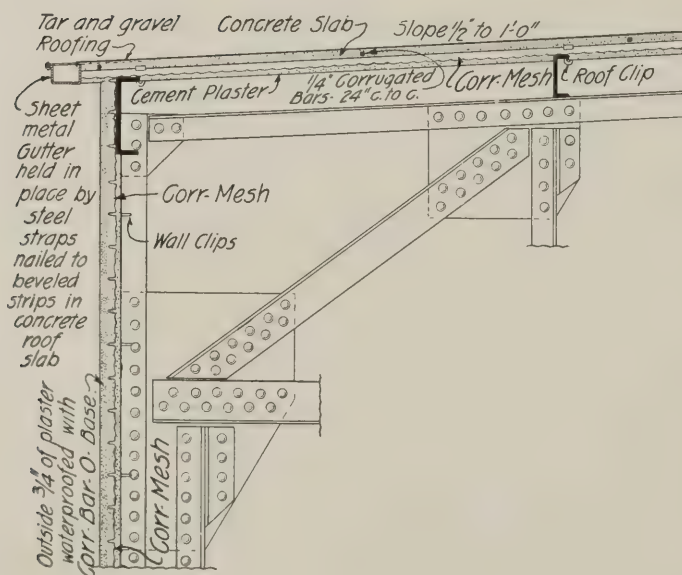 Tar and gravel
Roofing
Concrete Slab
Slope 1/2" to 1'-0"
Cement Plaster
1/4" Corrugated
Bars-24" c. to c.
Corr-Mesh
Roof Clip
Sheet
metal
Gutter
held in
place by
steel
straps
nailed to
beveled
strips in
concrete
roof
slab
Corr-Mesh
Wall Clips
Outside 3/4" of plaster
waterproofed with
Corr-Bar-O-Base.
Corr-Mesh